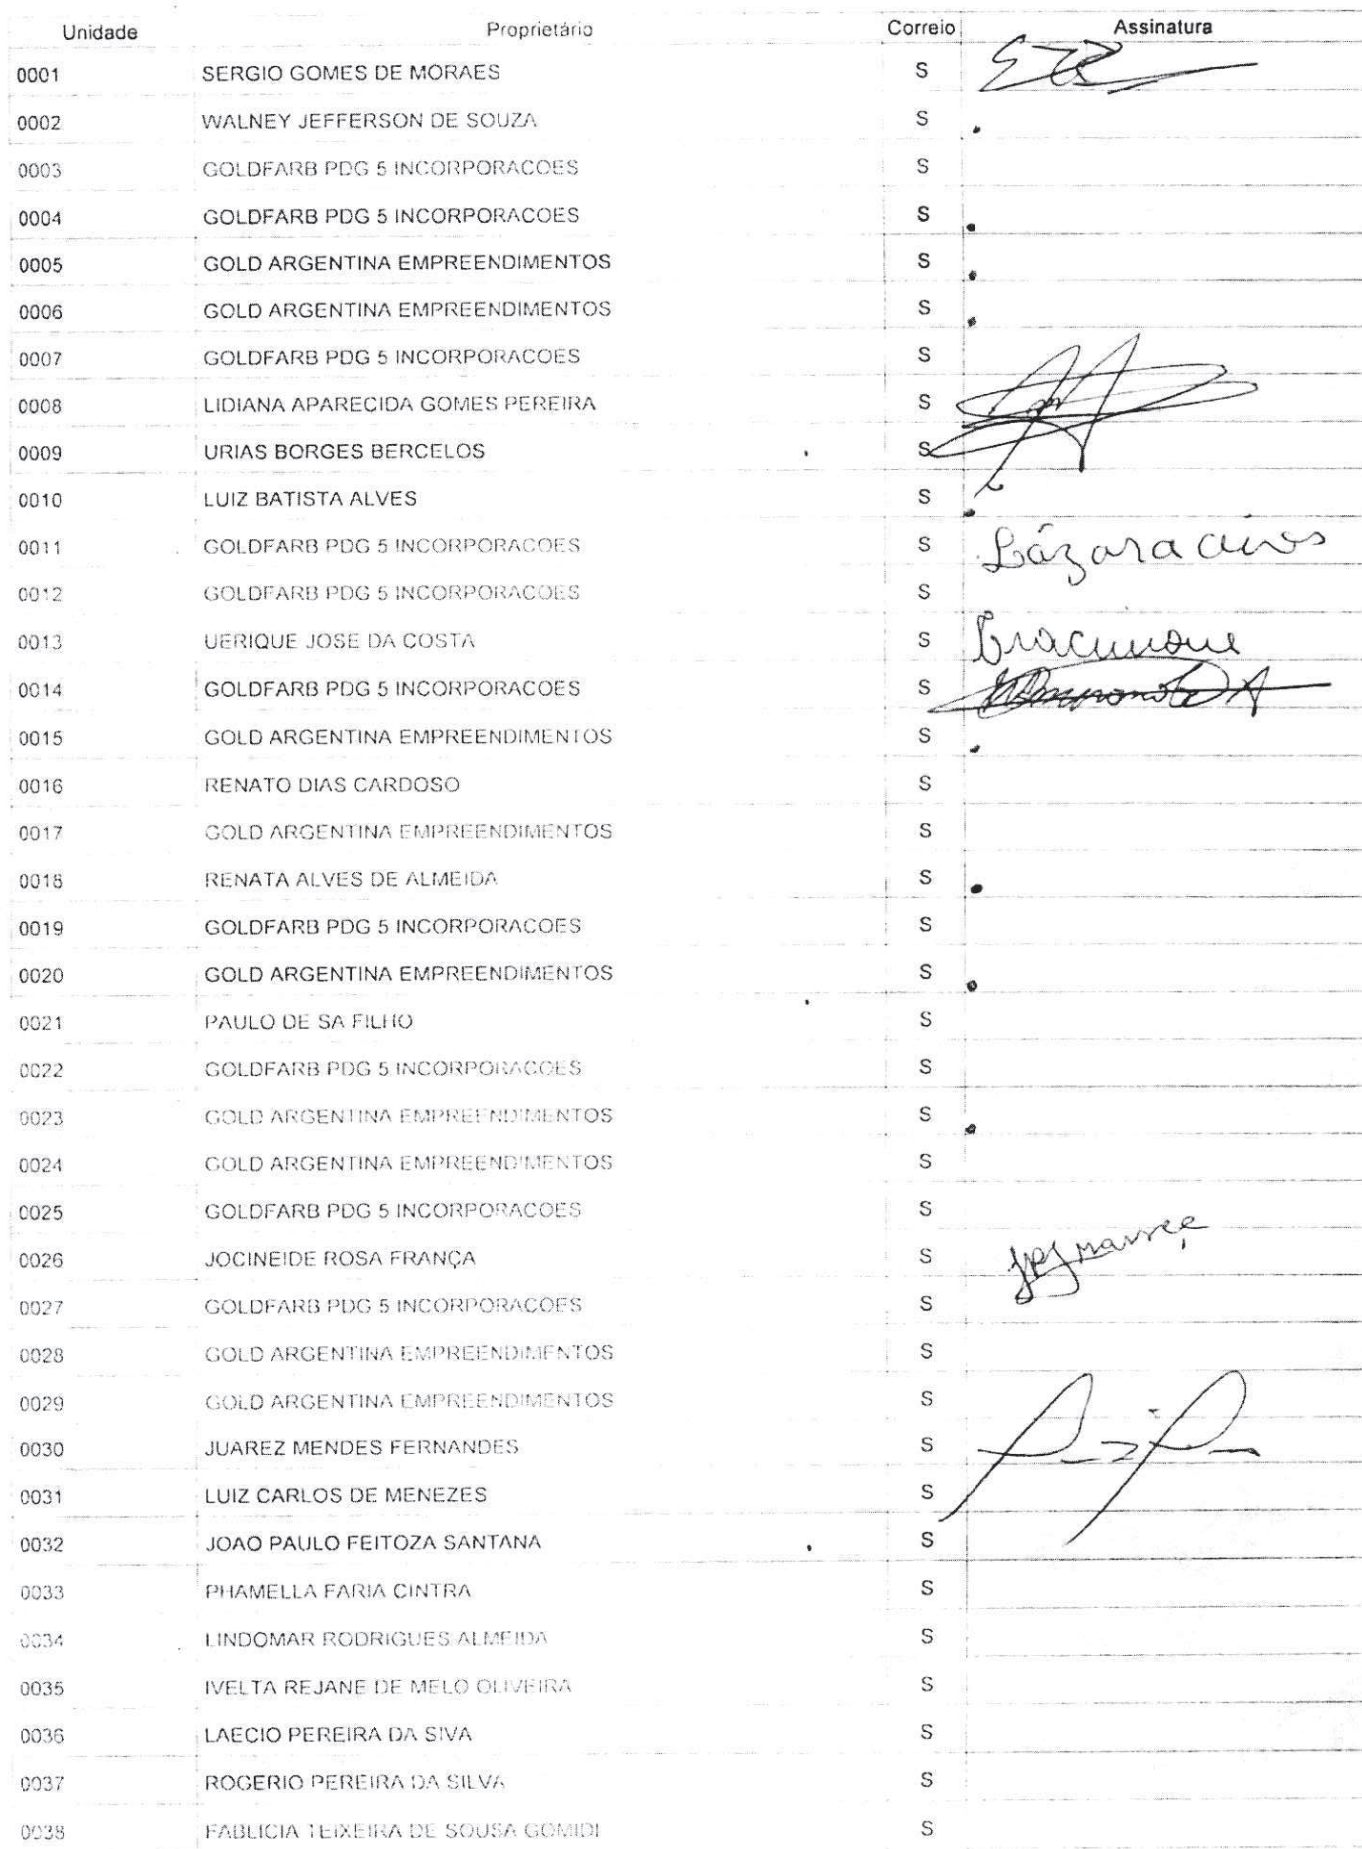 Unidade Proprietário Correio Assinatura
0001 SERGIO GOMES DE MORAES S
0002 WALNEY JEFFERSON DE SOUZA S
0003 GOLDFARB PDG 5 INCORPORACOES S
0004 GOLDFARB PDG 5 INCORPORACOES S
0005 GOLD ARGENTINA EMPREENDIMENTOS S
0006 GOLD ARGENTINA EMPREENDIMENTOS S
0007 GOLDFARB PDG 5 INCORPORACOES S
0008 LIDIANA APARECIDA GOMES PEREIRA S
0009 URIAS BORGES BERCELOS S
0010 LUIZ BATISTA ALVES S
0011 GOLDFARB PDG 5 INCORPORACOES S Lázara
0012 GOLDFARB PDG 5 INCORPORACOES S
0013 UERIQUE JOSE DA COSTA S
0014 GOLDFARB PDG 5 INCORPORACOES S
0015 GOLD ARGENTINA EMPREENDIMENTOS S
0016 RENATO DIAS CARDOSO S
0017 GOLD ARGENTINA EMPREENDIMENTOS S
0018 RENATA ALVES DE ALMEIDA S
0019 GOLDFARB PDG 5 INCORPORACOES S
0020 GOLD ARGENTINA EMPREENDIMENTOS S
0021 PAULO DE SA FILHO S
0022 GOLDFARB PDG 5 INCORPORACOES S
0023 GOLD ARGENTINA EMPREENDIMENTOS S
0024 GOLD ARGENTINA EMPREENDIMENTOS S
0025 GOLDFARB PDG 5 INCORPORACOES S
0026 JOCINEIDE ROSA FRANÇA S
0027 GOLDFARB PDG 5 INCORPORACOES S
0028 GOLD ARGENTINA EMPREENDIMENTOS S
0029 GOLD ARGENTINA EMPREENDIMENTOS S
0030 JUAREZ MENDES FERNANDES S
0031 LUIZ CARLOS DE MENEZES S
0032 JOAO PAULO FEITOZA SANTANA S
0033 PHAMELLA FARIA CINTRA S
0034 LINDOMAR RODRIGUES ALMEIDA S
0035 IVELTA REJANE DE MELO OLIVEIRA S
0036 LAECIO PEREIRA DA SIVA S
0037 ROGERIO PEREIRA DA SILVA S
0038 FABLICIA TEIXEIRA DE SOUSA GOMIDI S